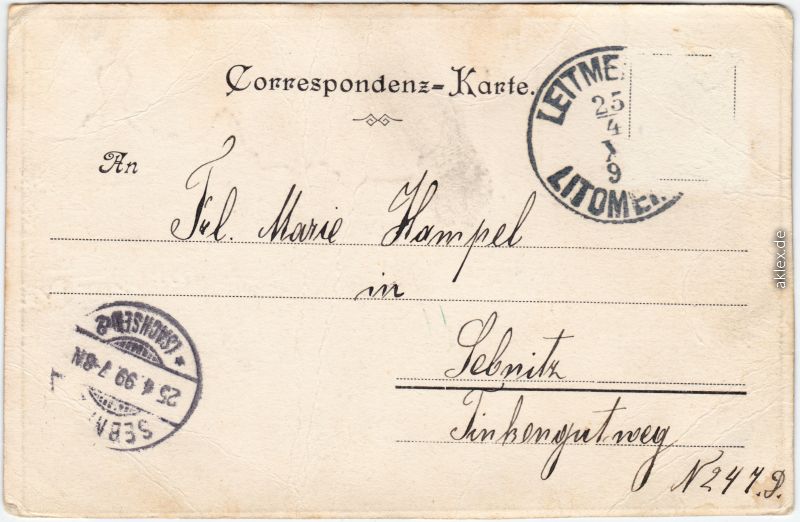 Correspondenz-Karte.
LEITME
25
4
9
LITOME
An
Frl. Marie Hampel
in
Sebnitz
Finkengutweg
N 247.D.
* (SACHSEN) a
25 4.99.7-8N
SEBN
aklex.de